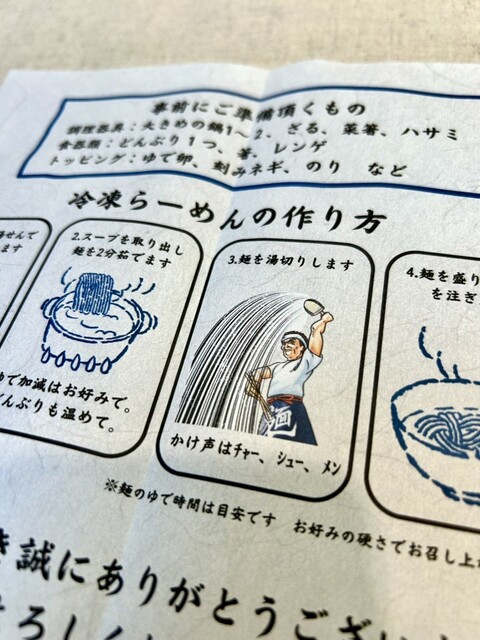 事前にご準備頂くもの
調理器具：大きめの鍋1〜2、ざる、菜箸、ハサミ
食器類：どんぶり1つ、箸、レンゲ
トッピング：ゆで卵、刻みネギ、のり など
冷凍らーめんの作り方
せんて
ます
2.スープを取り出し
麺を2分茹でます
で加減はお好みで。
んぶりも温めて。
3.麺を湯切りします
麺
かけ声はチャー、シュー、メン
4.麺を盛り
を注ぎ
※麺のゆで時間は目安です お好みの硬さでお召し上
誠にありがとうござい
ろしく